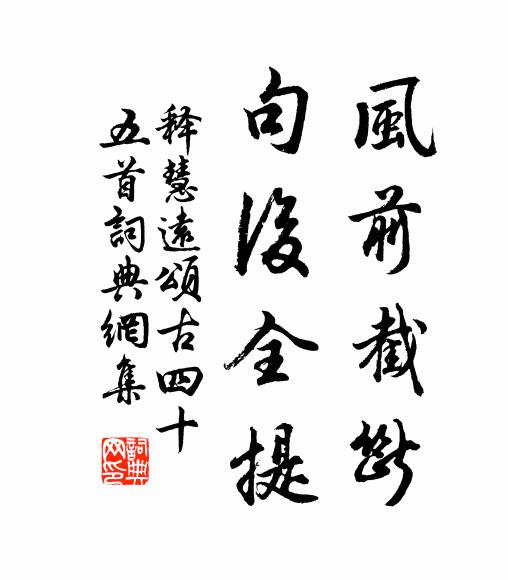 風前截斷
句後全提
释慧遠頌古四十
五首詞典網集
詞典网印